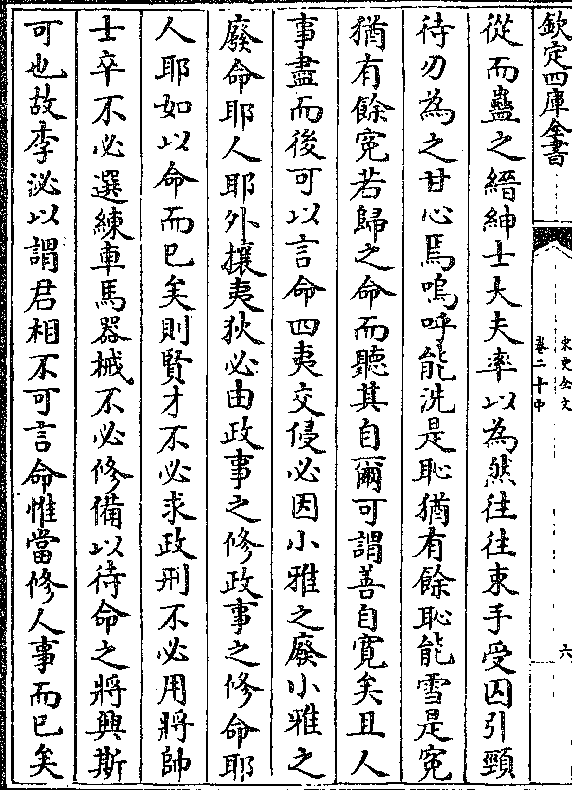 欽定四庫全書
宋史全文
卷二十中
六
從而蠱之縉紳士大夫率以為然往往束手受囚引頸
待刃為之甘心焉嗚呼能洗是恥猶有餘恥能雪是寃
猶有餘寃若歸之命而聽其自爾可謂善自寛矣且人
事盡而後可以言命四夷交侵必因小雅之廢小雅之
廢命耶人耶外攘夷狄必由政事之修政事之修命耶
人耶如以命而已矣則賢才不必求政刑不必用將帥
士卒不必選練車馬器械不必修備以待命之將興斯
可也故李泌以謂君相不可言命惟當修人事而已矣